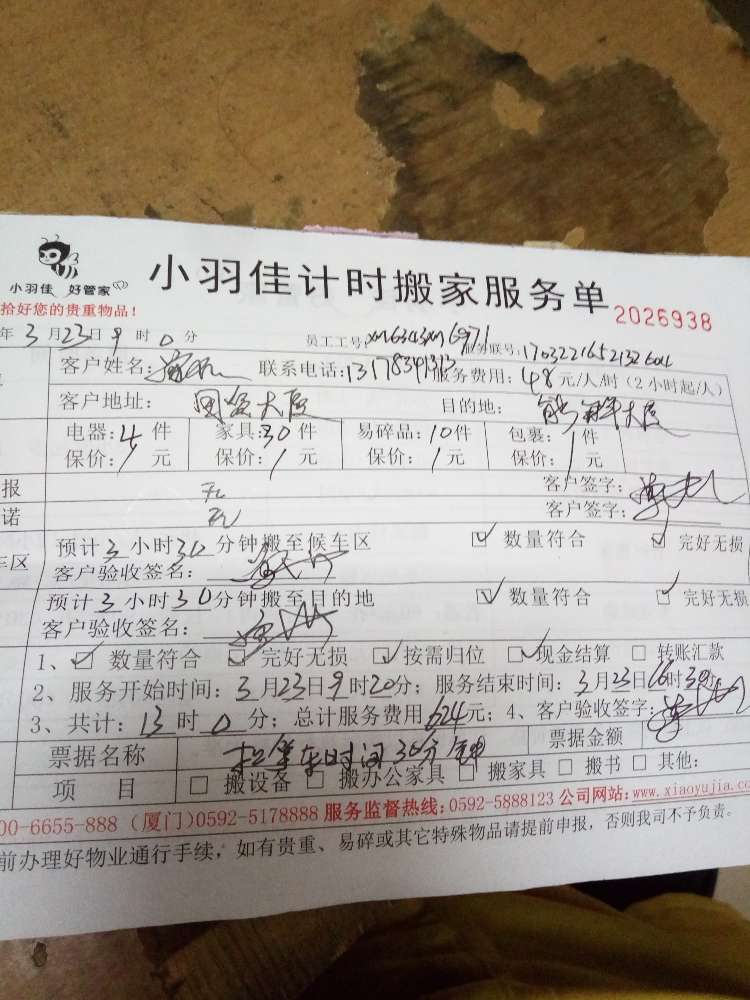 小羽佳 好管家
小羽佳计时搬家服务单
2026938
拾好您的贵重物品！
年3月23日9时0分 员工工号: 服务联号:1703221652132604
客户姓名: 联系电话:13178341313 服务费用:48元/人/时(2小时起/人)
客户地址: 国贸大厦 目的地: 大厦
电器:4件 家具:30件 易碎品:10件 包裹:1件
保价:/元 保价:/元 保价:/元 保价:/元
报 无 客户签字:
诺 无 客户签字:
预计3小时30分钟搬至候车区 ☑ 数量符合 ☑ 完好无损
车区 客户验收签名:
预计3小时30分钟搬至目的地 ☑ 数量符合 ☑ 完好无损
客户验收签名:
1、☑ 数量符合 ☑ 完好无损 ☑ 按需归位 ☑ 现金结算 □ 转账汇款
2、服务开始时间:3月23日9时20分; 服务结束时间:3月23日16时30分
3、共计:13时0分; 总计服务费用624元; 4、客户验收签字:
票据名称 车时间30分钟 票据金额
项 目 □ 搬设备 □ 搬办公家具 □ 搬家具 □ 搬书 □ 其他:
00-6655-888 (厦门)0592-5178888 服务监督热线:0592-5888123 公司网站:www.xiaoyujia.c
前办理好物业通行手续，如有贵重、易碎或其它特殊物品请提前申报，否则我司不予负责。